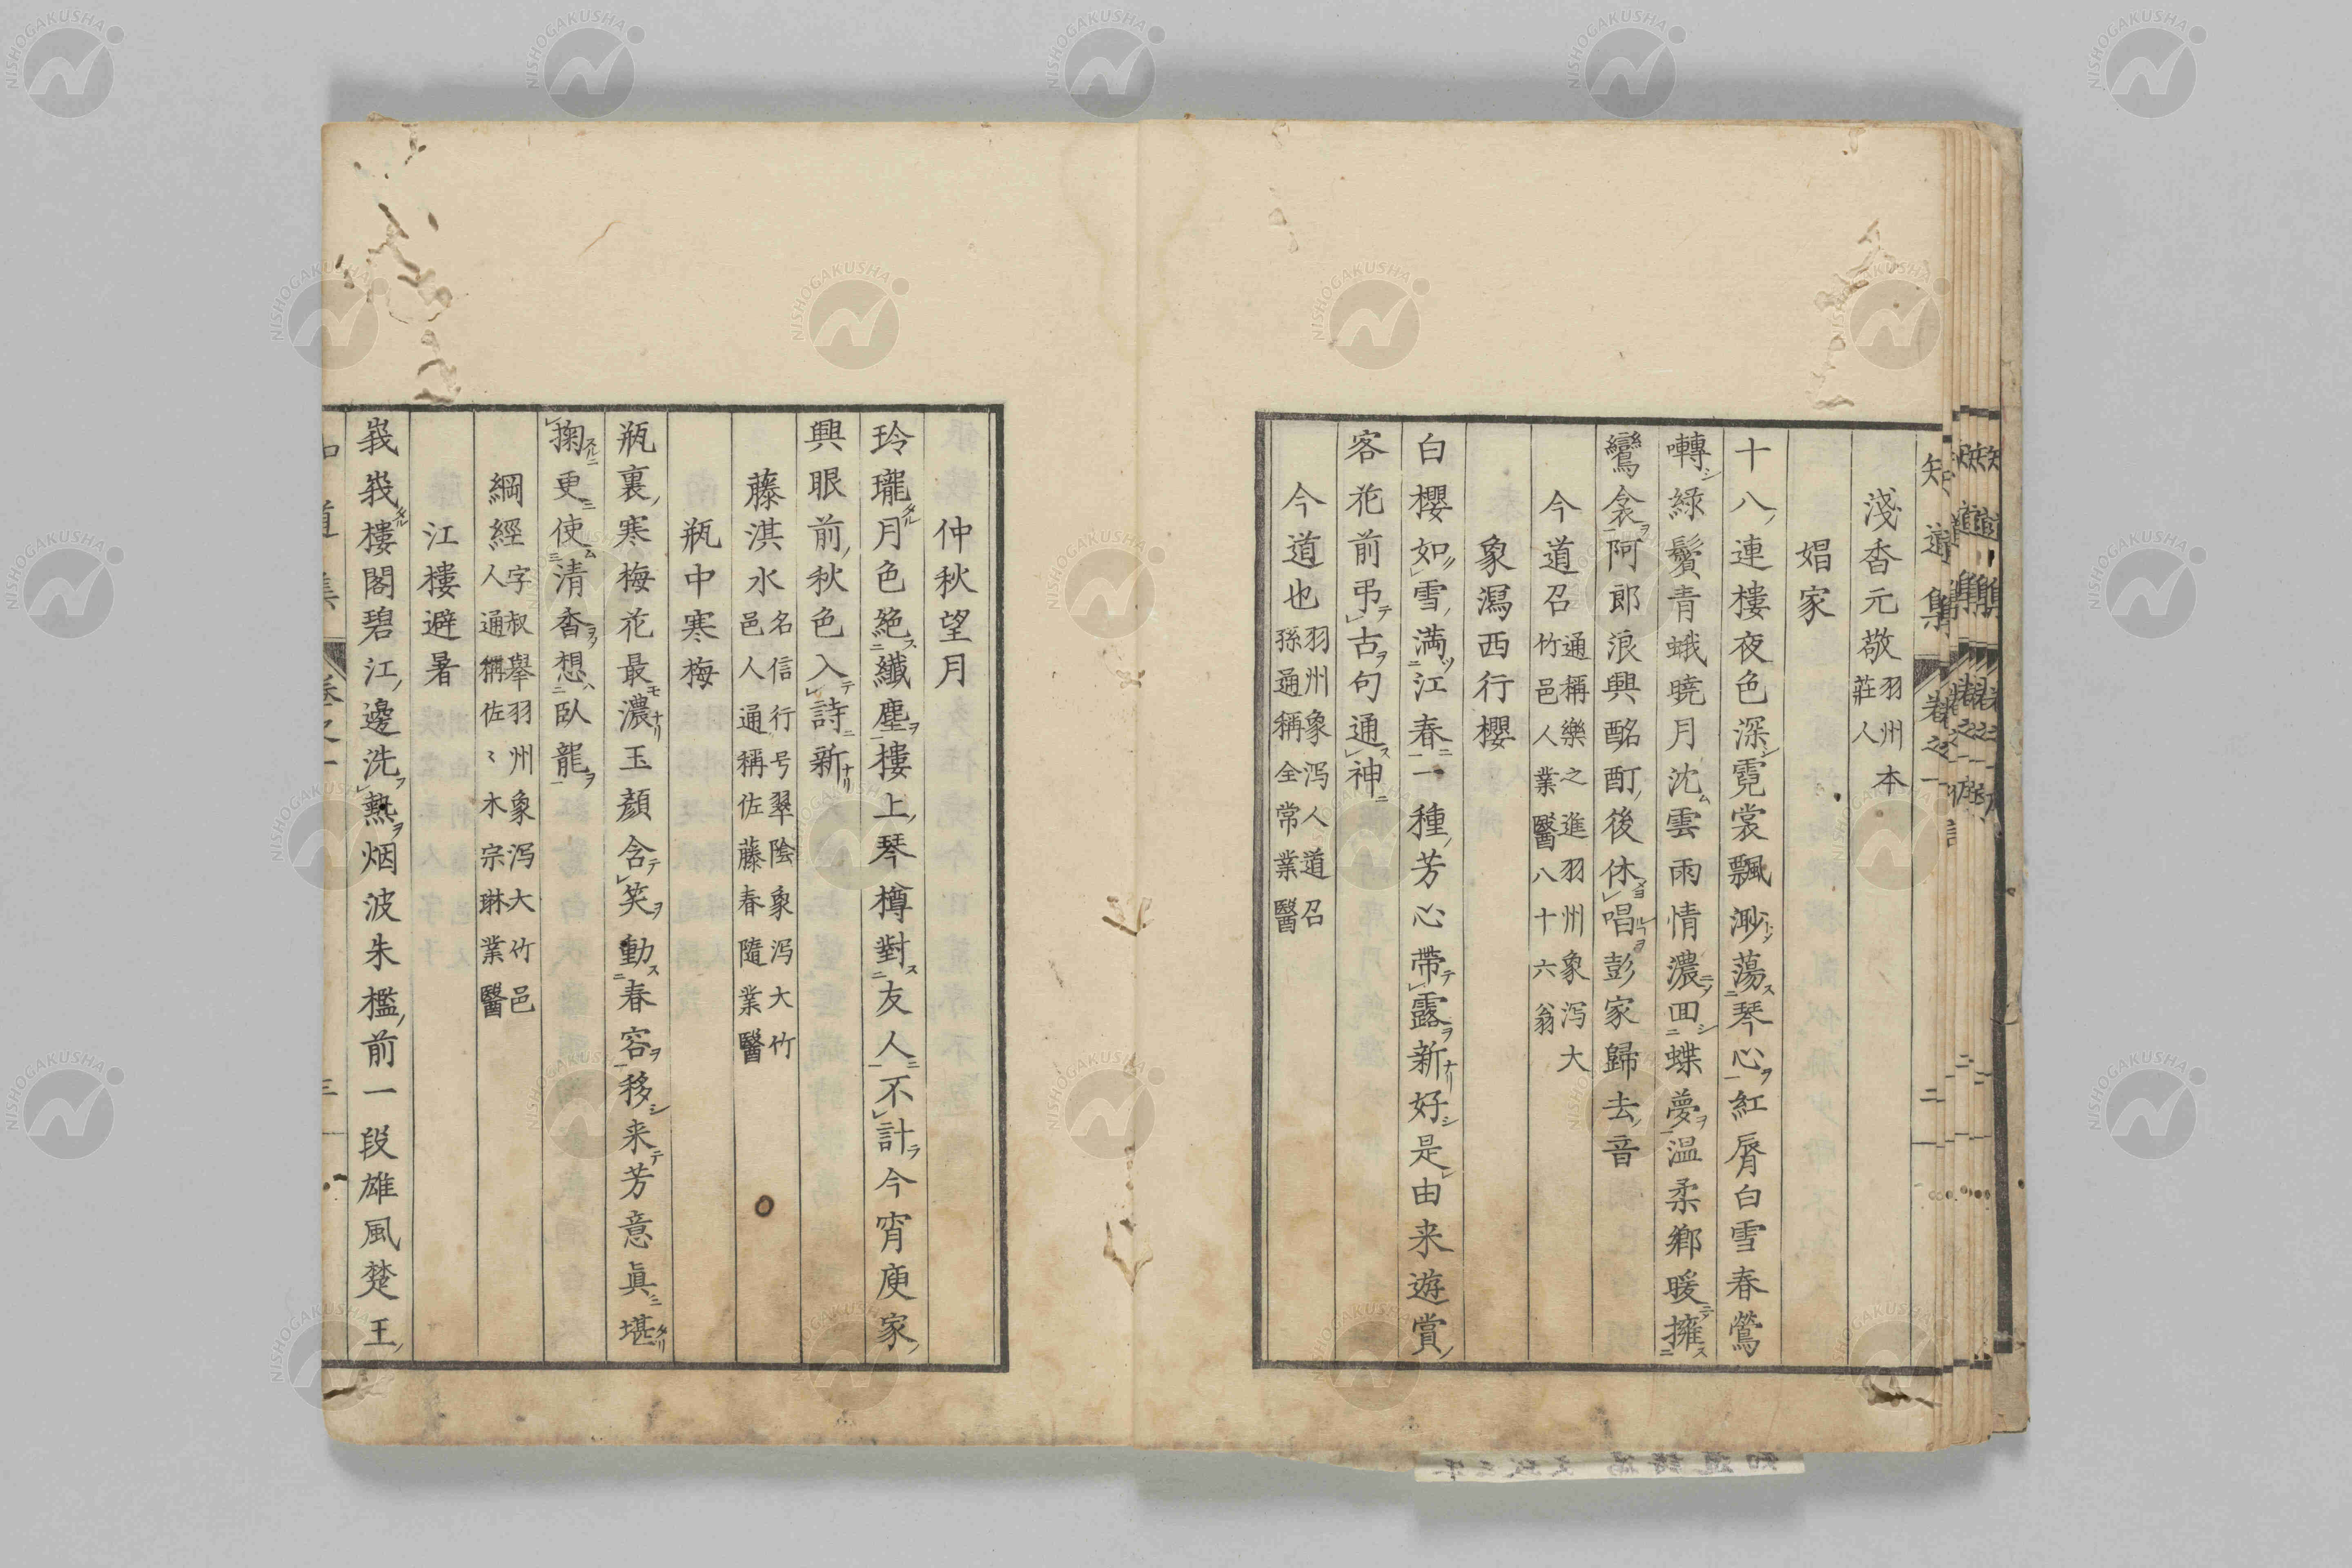 淺香元敬羽州本莊人
娼家
十八連樓夜色深霓裳飄渺蕩琴心紅脣白雪春鶯
囀綠鬢青蛾曉月沈雲雨情濃回蝶夢溫柔鄉暖擁
鸞衾阿郎浪興酩酊後休唱彭家歸去音
今道召通稱樂之進羽州象泻大竹邑人業醫八十六翁
象潟西行櫻
白櫻如雪滿江春一種芳心帶露新好是由来遊賞
客花前弔古句通神
今道也羽州象泻人道召孫通稱全常業醫
仲秋望月
玲瓏月色絕纖塵樓上琴樽對友人不計今宵庾家
興眼前秋色入詩新
藤淇水名信行号翠陰象泻大竹邑人通稱佐藤春隨業醫
瓶中寒梅
瓶裏寒梅花最濃玉顏含笑動春容移来芳意真堪
掬更使清香想臥龍
綱經字叔舉羽州象泻大竹邑人通稱佐々木宗琳業醫
江樓避暑
峩峩樓閣碧江邊洗熱烟波朱檻前一段雄風楚王